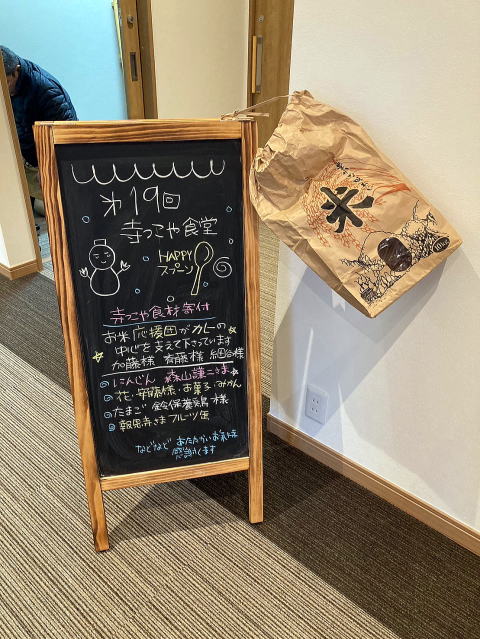 第19回
寺っこや食堂
HAPPY
スプーン
寺っこや食材寄付
お米応援団がカレーの
中心を支えて下さっています
加藤様 斉藤様 細田様
にんじん 森山謙二さま
花・安藤様・お菓子・みかん
たまご 鈴保養鶏様
報恩寺さまフルーツ缶
などなど あたたかいお気持
感謝します
米
10kg